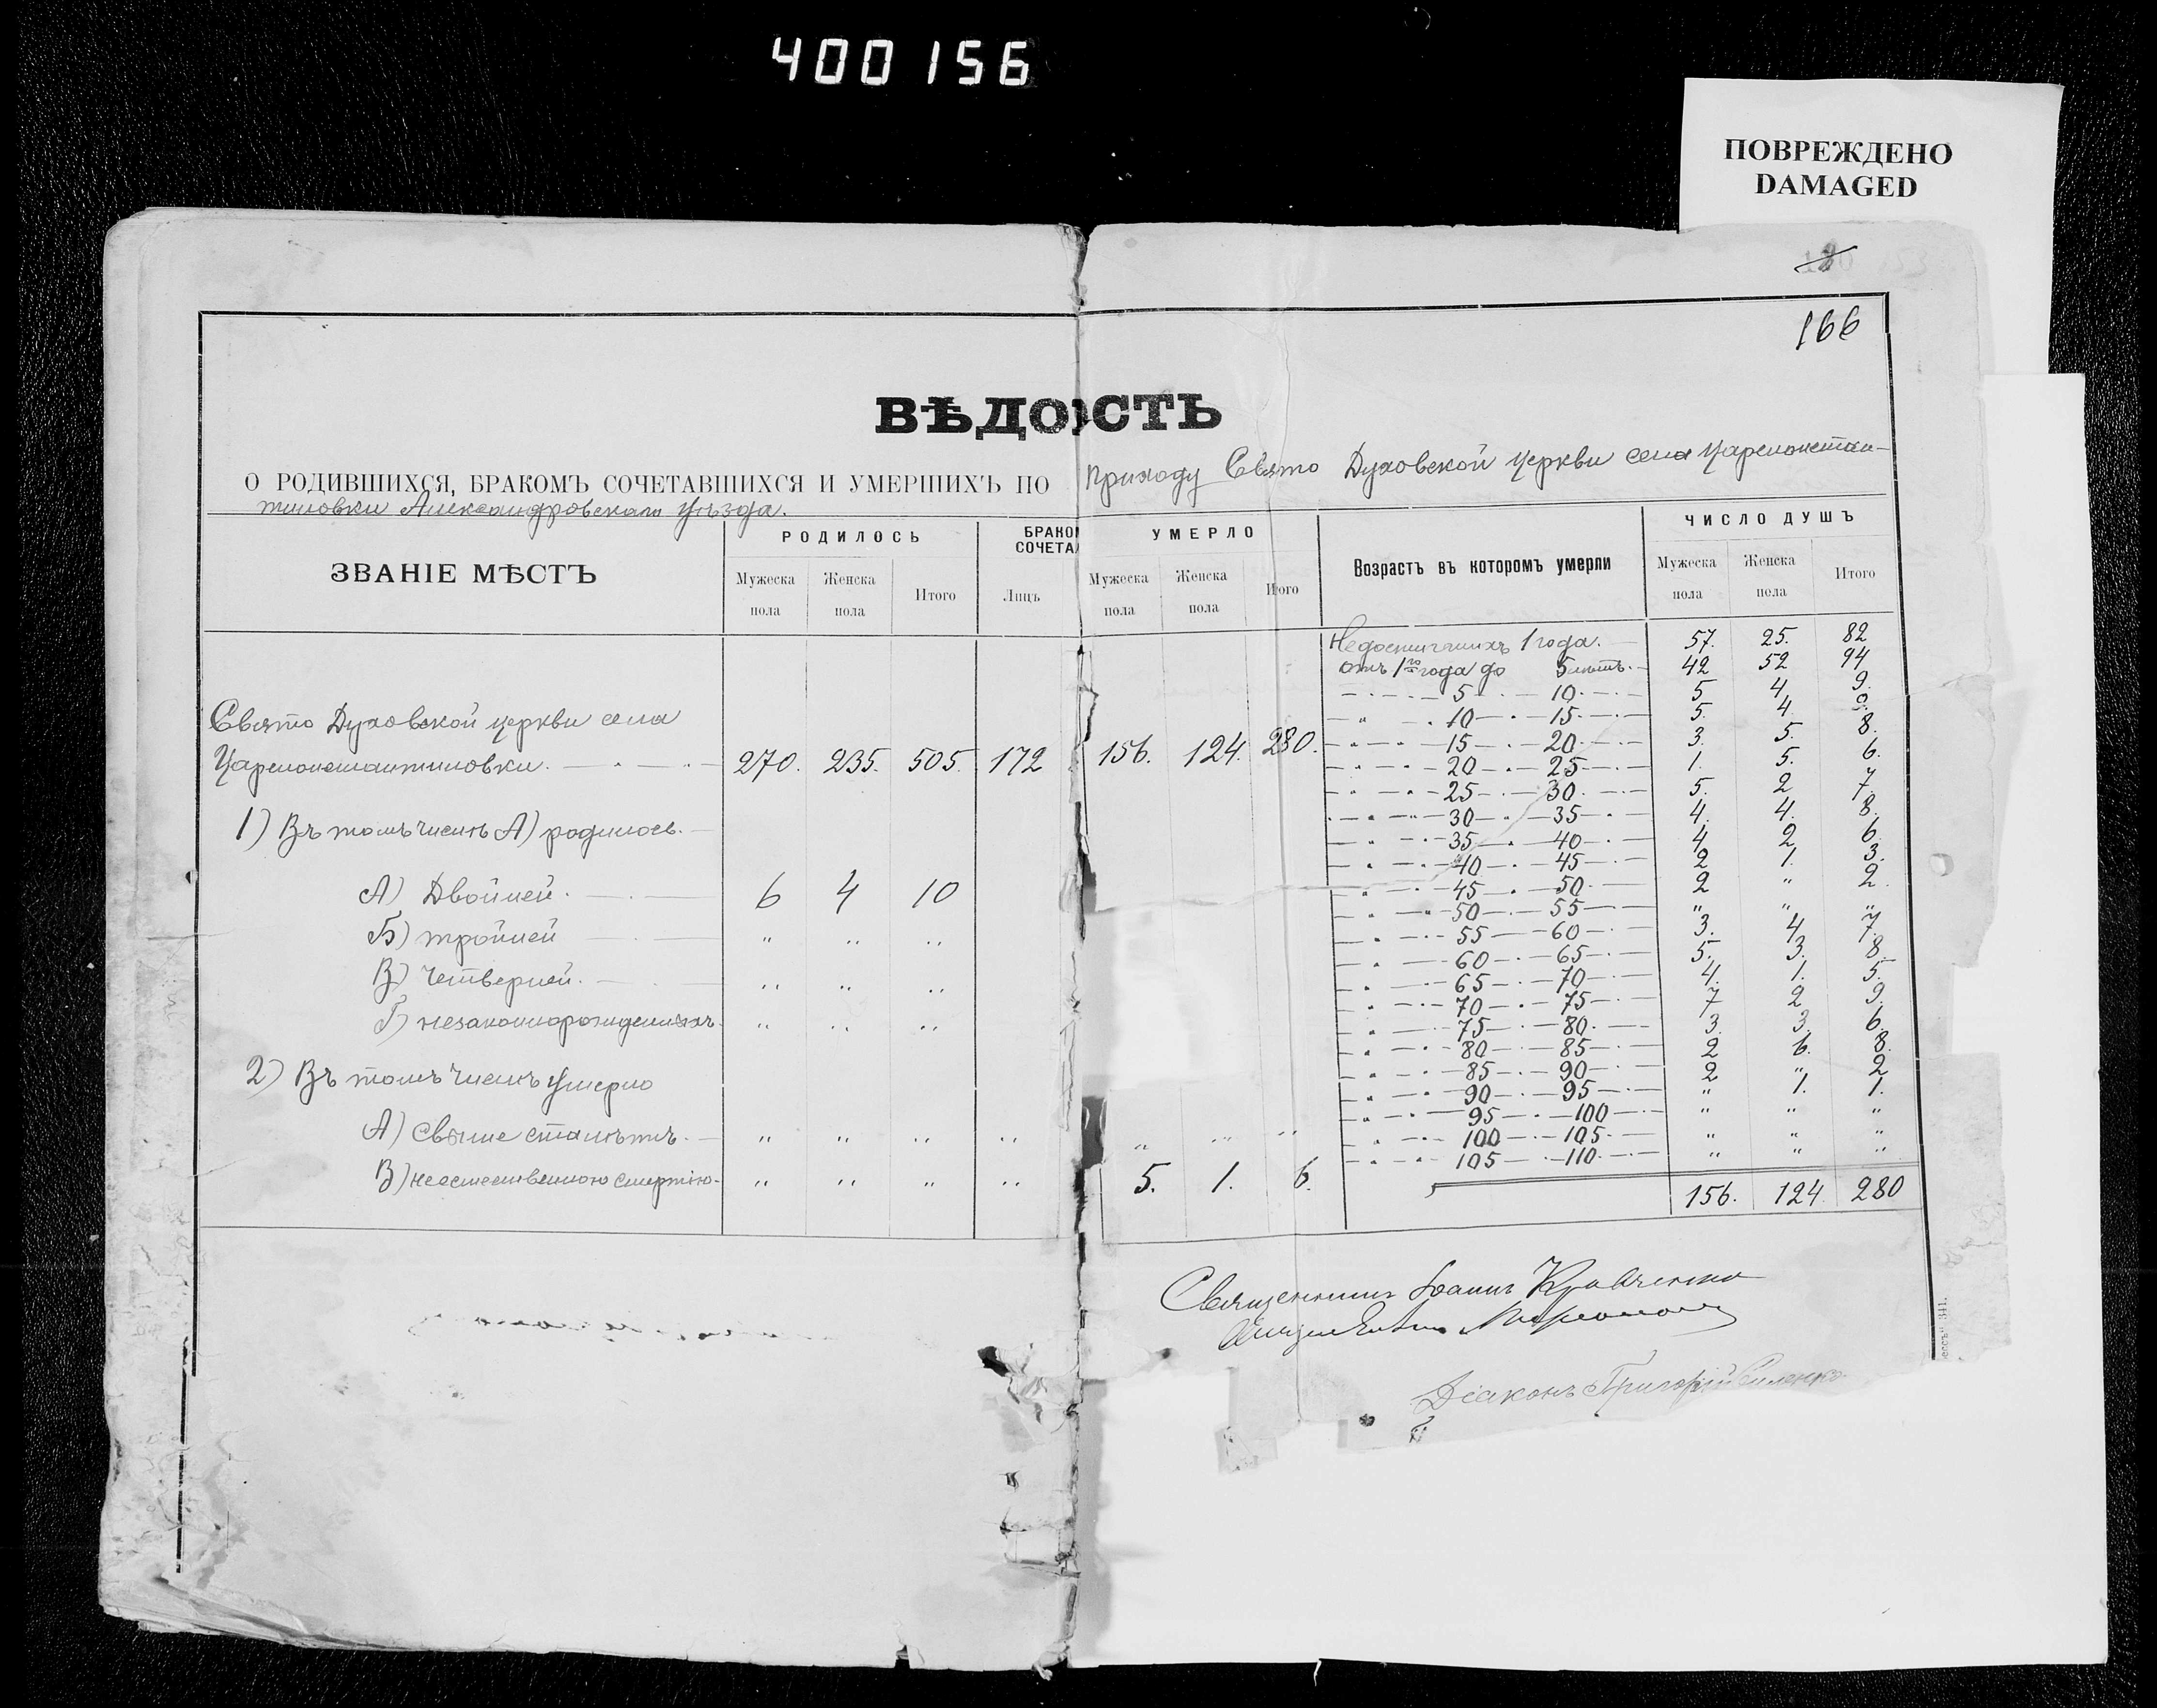 400156
ПОВРЕЖДЕНО
DAMAGED
166
ВѢДОСТЬ
О РОДИВШИХСЯ, БРАКОМЪ СОЧЕТАВШИХСЯ И УМЕРШИХЪ ПО приходу Свято Духовской церкви села Цареконстан-
тиновки Александровскаго уѣзда.
ЗВАНІЕ МѢСТЪ
РОДИЛОСЬ
Мужеска пола
Женска пола
Итого
БРАКОМ
СОЧЕТА
Лицъ
УМЕРЛО
Мужеска пола
Женска пола
Итого
Возрастъ въ которомъ умерли
ЧИСЛО ДУШЪ
Мужеска пола
Женска пола
Итого
Свято Духовской церкви села
Цареконстантиновки. 270. 235. 505. 172 156. 124. 280.
1) Въ томъ числѣ А) родилось.
А) Двойней. 6 4 10
Б) тройней " " "
В) Четверней. " " "
Г) незаконнорожденныхъ " " "
2) Въ томъ числѣ умерло
А) Свыше ста лѣтъ. " " " " " " "
В) неестественною смертію. " " " " 5. 1. 6.
Недостигшихъ 1 года. 57. 25. 82
отъ 1го года до 5 лѣтъ. 42 52 94
5 — 10 5 4 9.
10 — 15 5. 4. 9.
15 — 20 3. 5. 8.
20 — 25 1. 5. 6.
25 — 30 5. 2 7.
30 — 35 4. 4. 8.
35 — 40 4 2 6.
40 — 45 2 1. 3.
45 — 50 2 " 2.
50 — 55 " " "
55 — 60 3. 4 7.
60 — 65 5. 3. 8.
65 — 70 4. 1. 5.
70 — 75 7 2 9.
75 — 80 3. 3. 6.
80 — 85 2 6. 8.
85 — 90 2 " 2
90 — 95 " 1. 1.
95 — 100 " " "
100 — 105 " " "
105 — 110 " " "
156. 124. 280
Священникъ Іоаннъ Кравченко
Діаконъ Григорій Силенко